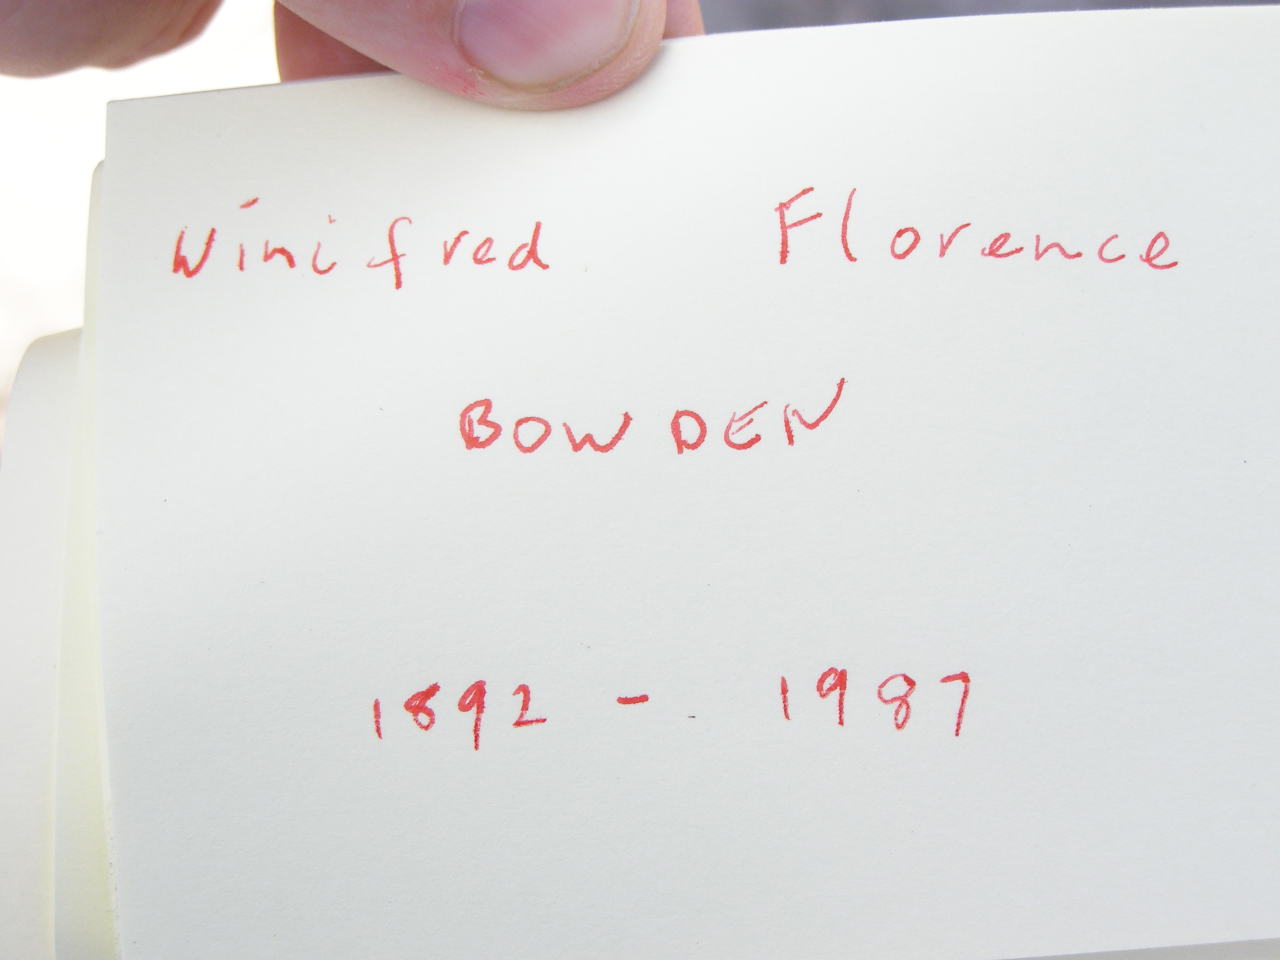 Winifred Florence
BOWDEN
1892 - 1987